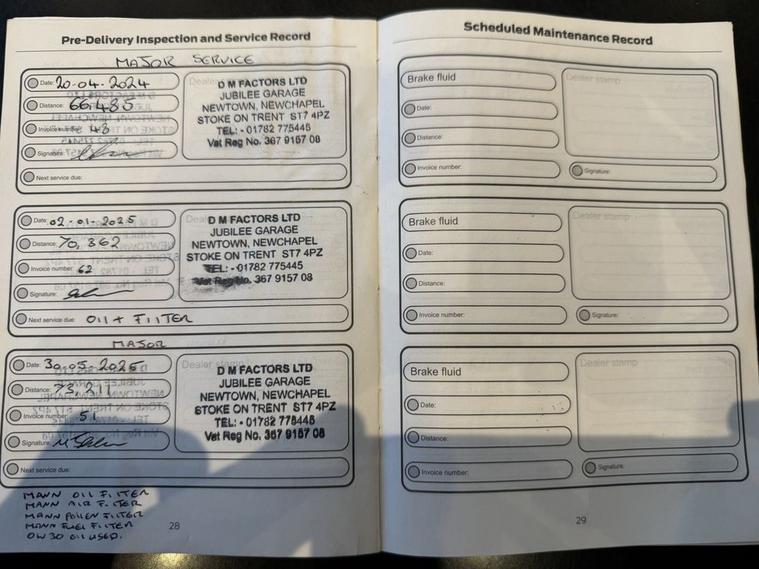 Pre-Delivery Inspection and Service Record
MAJOR SERVICE
Date: 20.04.2024
Distance: 66,485
Invoice number 48
Signature:
Next service due:
D M FACTORS LTD
JUBILEE GARAGE
NEWTOWN, NEWCHAPEL
STOKE ON TRENT ST7 4PZ
TEL: - 01782 775445
Vat Reg No. 367 9157 08
Date: 02-01-2025
Distance: 70,862
Invoice number: 62
Signature:
Next service due: OIL + FILTER
D M FACTORS LTD
JUBILEE GARAGE
NEWTOWN, NEWCHAPEL
STOKE ON TRENT ST7 4PZ
TEL: - 01782 775445
Vat Reg No. 367 9157 08
MAJOR
Date: 30.05.2025
Distance: 73,211
Invoice number: 51
Signature:
Next service due:
Dealer stamp
D M FACTORS LTD
JUBILEE GARAGE
NEWTOWN, NEWCHAPEL
STOKE ON TRENT ST7 4PZ
TEL: - 01782 775445
Vat Reg No. 367 9157 08
MANN OIL FILTER
MANN AIR FILTER
MANN POLLEN FILTER
MANN FUEL FILTER
0W30 OIL USED.
28
Scheduled Maintenance Record
Brake fluid
Date:
Distance:
Invoice number:
Dealer stamp
Signature:
Brake fluid
Date:
Distance:
Invoice number:
Dealer stamp
Signature:
Brake fluid
Date:
Distance:
Invoice number:
Dealer stamp
Signature:
29